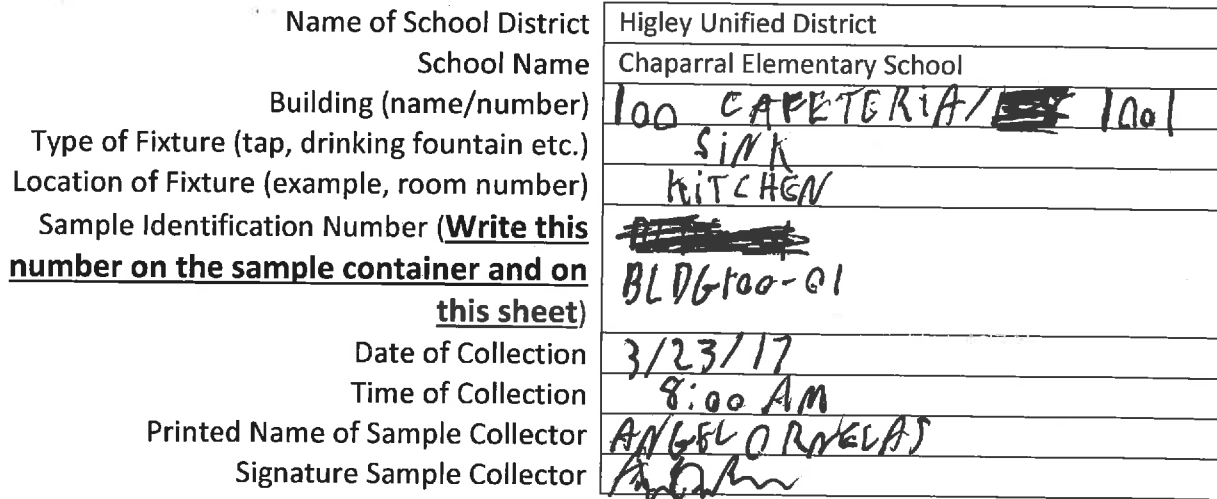 Name of School District Higley Unified District
School Name Chaparral Elementary School
Building (name/number) 100 CAFETERiA/ 1001
Type of Fixture (tap, drinking fountain etc.) SiNK
Location of Fixture (example, room number) KiTCHEN
Sample Identification Number (Write this
number on the sample container and on
this sheet) BLDG100-01
Date of Collection 3/23/17
Time of Collection 8:00 AM
Printed Name of Sample Collector ANGEL ORNELAS
Signature Sample Collector